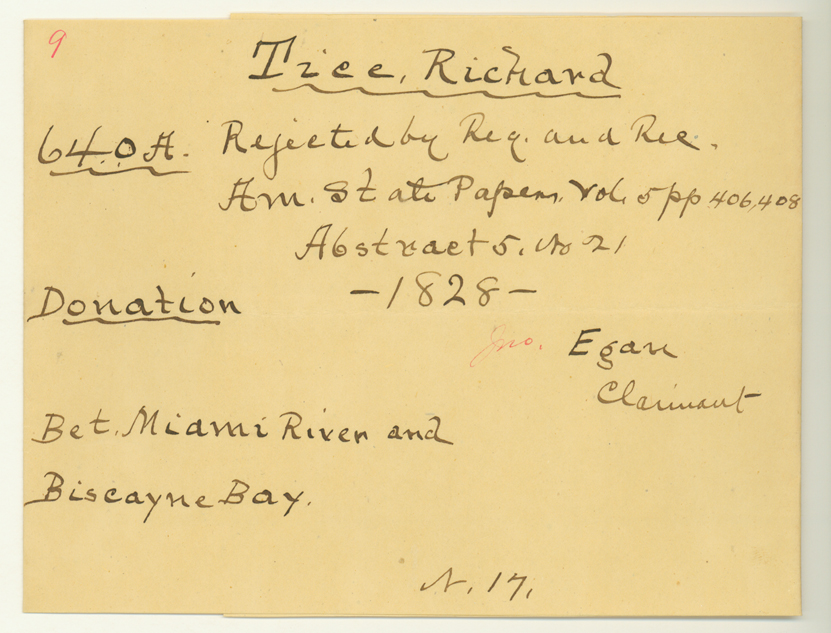 9
Tice, Richard
640 A. Rejected by Reg. and Rec.
Am. State Papers, Vol. 5 pp 406,408
Abstract 5. No 21
Donation
-1828-
Jno. Egan
Claimant
Bet. Miami River and
Biscayne Bay.
N. 17.